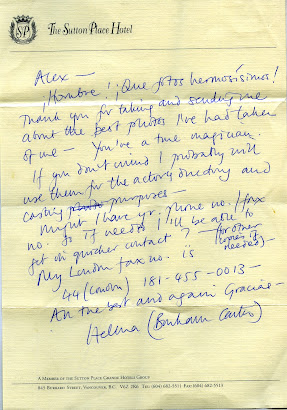 SP The Sutton Place Hotel
Alex —
¡Hombre!! Que fotos hermosísimos!
Thank you for taking and sending me
about the best photos I've had taken
of me — You're a true magician.
If you don't mind I probably will
use them for the actors directory and
casting photo purposes —
Might I have yr. phone no. / fax
no. so if needs I'll be able to
get on quicher contact? (for other
copies if
needed) —
My London fax no. is
44 (London) 181-455-0013 —
All the best and again Gracias —
Helena (Bonham Carter)
A MEMBER OF THE SUTTON PLACE GRANDE HOTELS GROUP
845 BURRARD STREET, VANCOUVER, B.C. V6Z 2K6 TEL: (604) 682-5511 FAX: (604) 682-5513